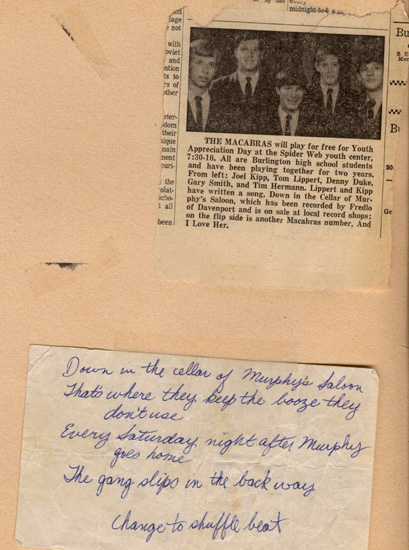 midnight to 6 a.m.
jage
e not
with
oviet
and
ntion
ts to
rs of
other
eter-
dom
their
nique
main
ment
curi-
the
olat-
echo-
t all
been
THE MACABRAS will play for free for Youth
Appreciation Day at the Spider Web youth center,
7:30-10. All are Burlington high school students
and have been playing together for two years.
From left: Joel Kipp, Tom Lippert, Denny Duke,
Gary Smith, and Tim Hermann. Lippert and Kipp
have written a song, Down in the Cellar of Mur-
phy's Saloon, which has been recorded by Fredlo
of Davenport and is on sale at local record shops;
on the flip side is another Macabras number, And
I Love Her.
Bu
50
Ge
Down in the cellar of Murphy's Saloon
That's where they keep the booze they
don't use
Every Saturday night after Murphy
goes home
The gang slips in the back way
Change to shuffle beat